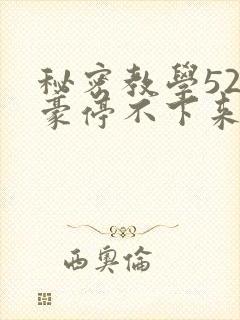 秘密教學52
豪停不下来
西奥倫